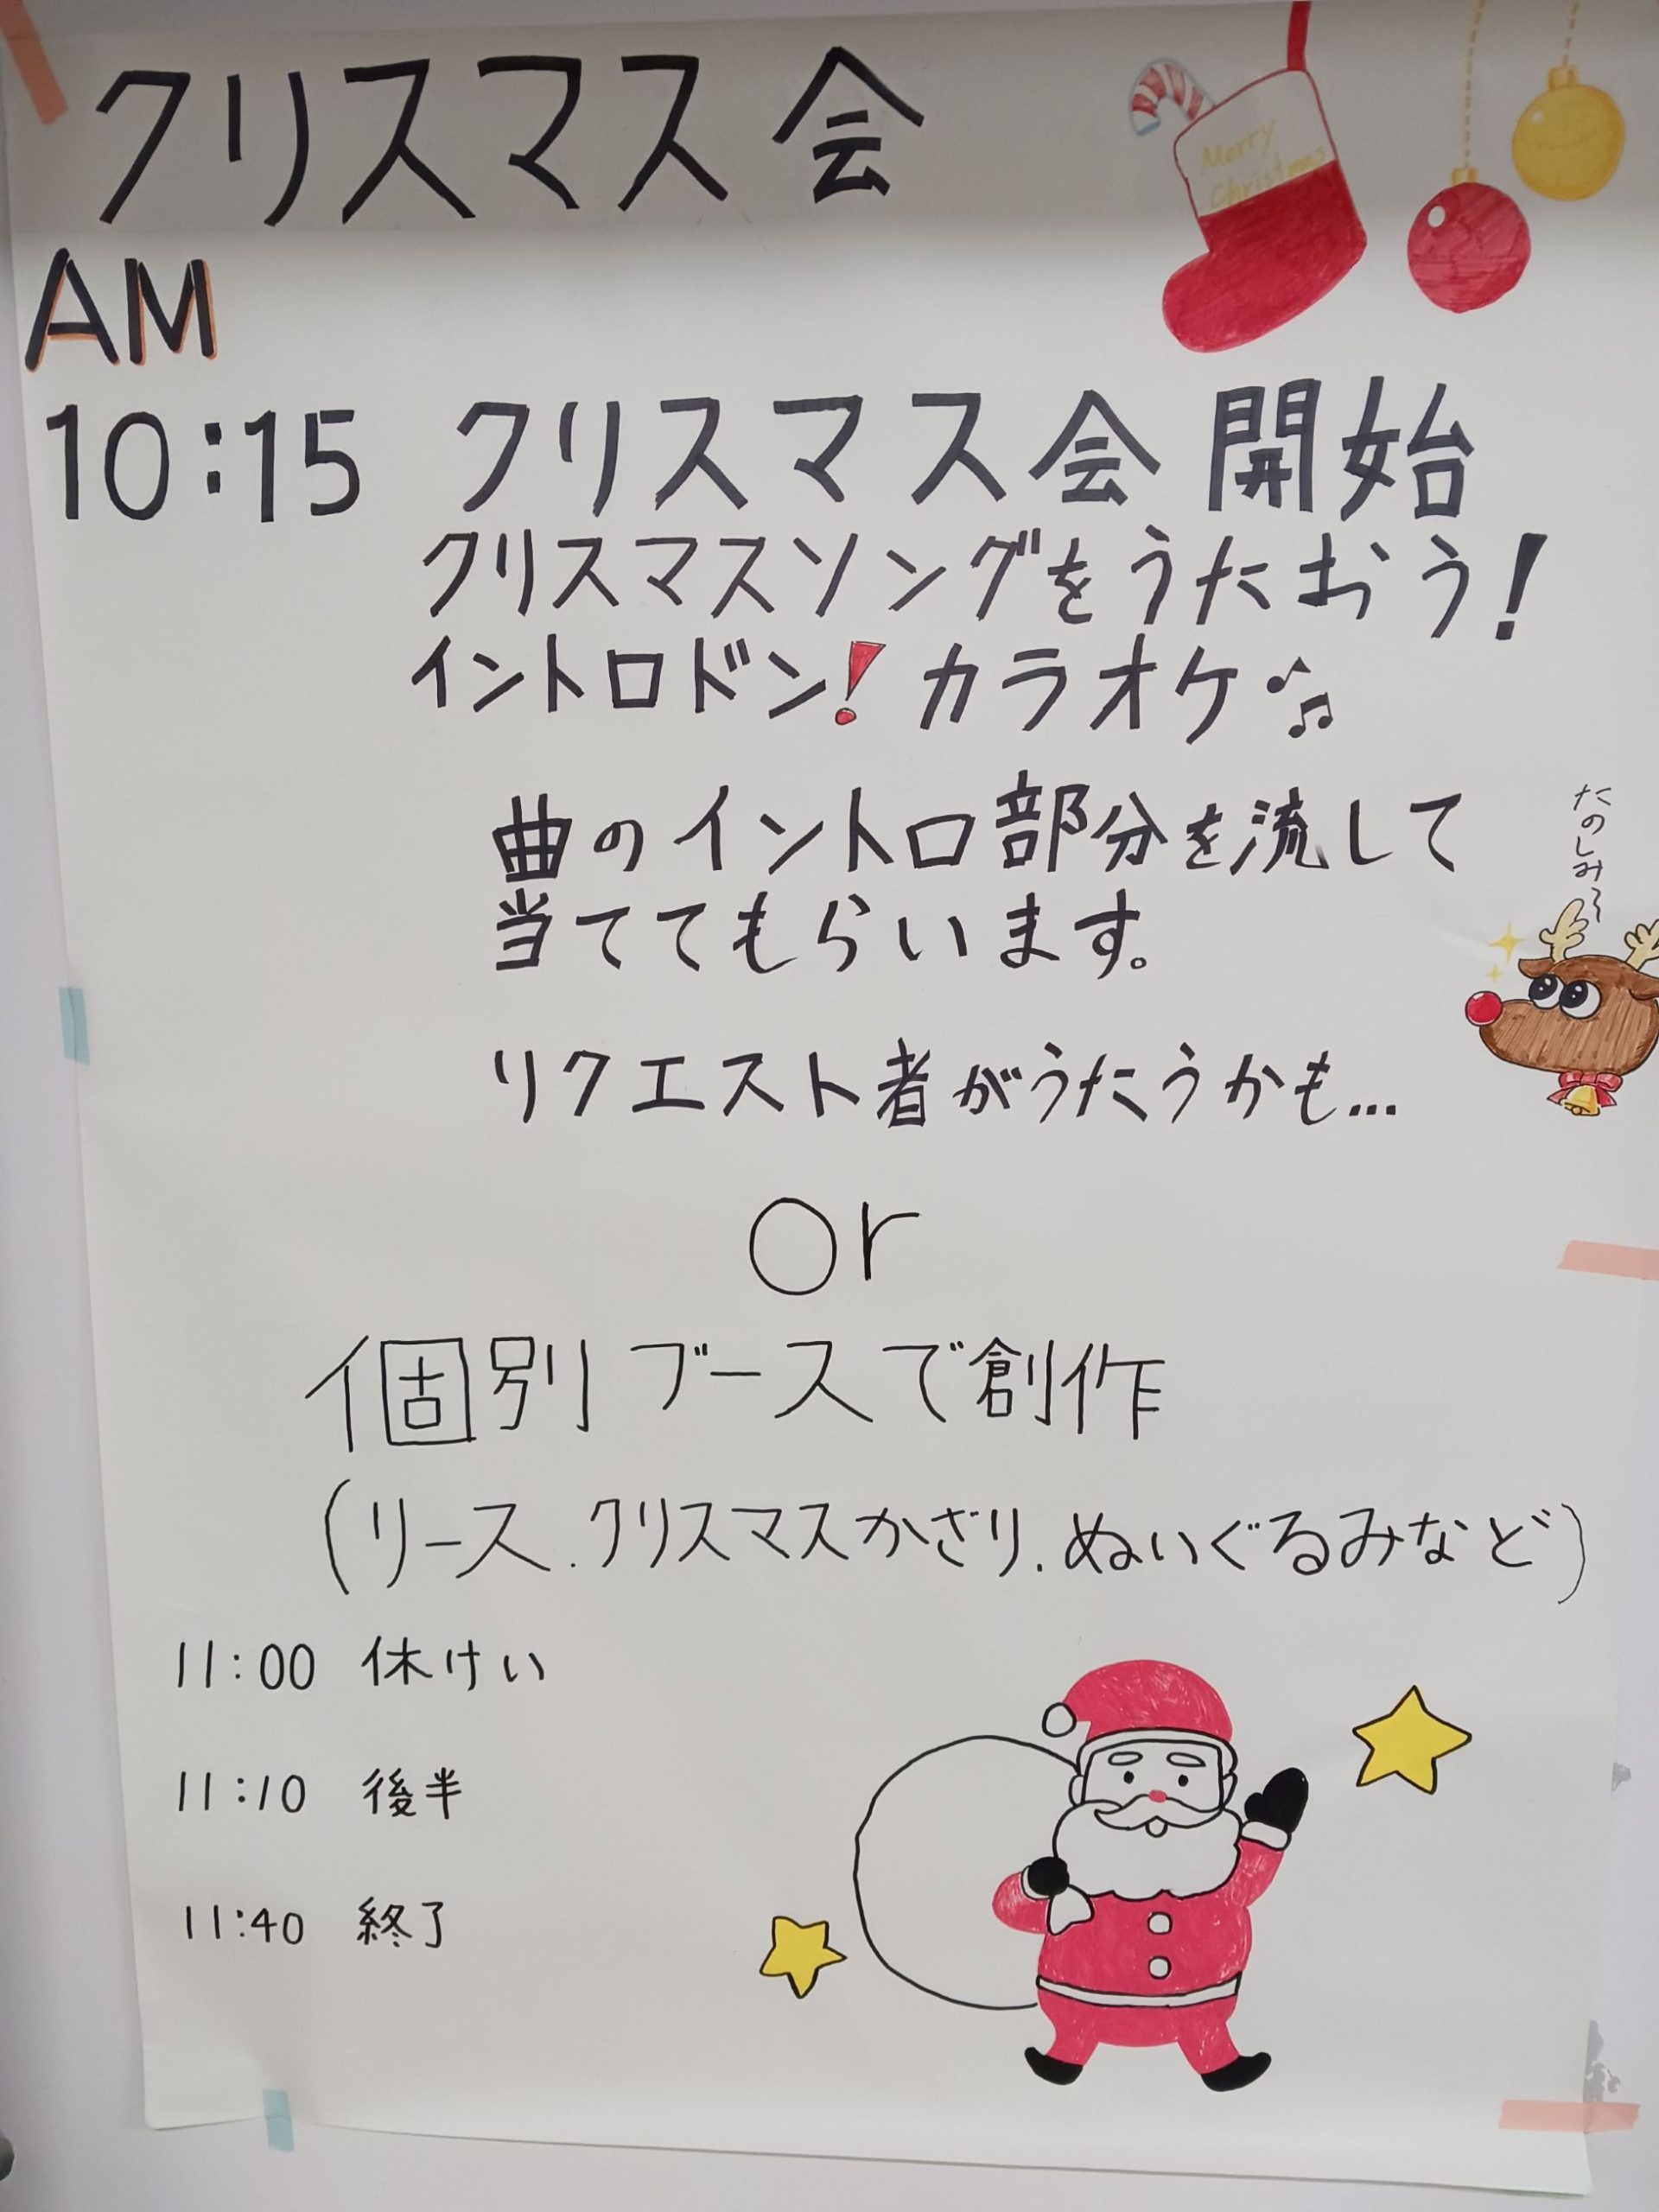 クリスマス会
Merry
Christmas
AM
10:15 クリスマス会開始
クリスマスソングをうたおう!
イントロドン! カラオケ♪♫
曲のイントロ部分を流して
当ててもらいます。
たのしみ〜
リクエスト者がうたうかも...
or
個別ブースで創作
(リース.クリスマスかざり.ぬいぐるみなど)
11:00 休けい
11:10 後半
11:40 終了